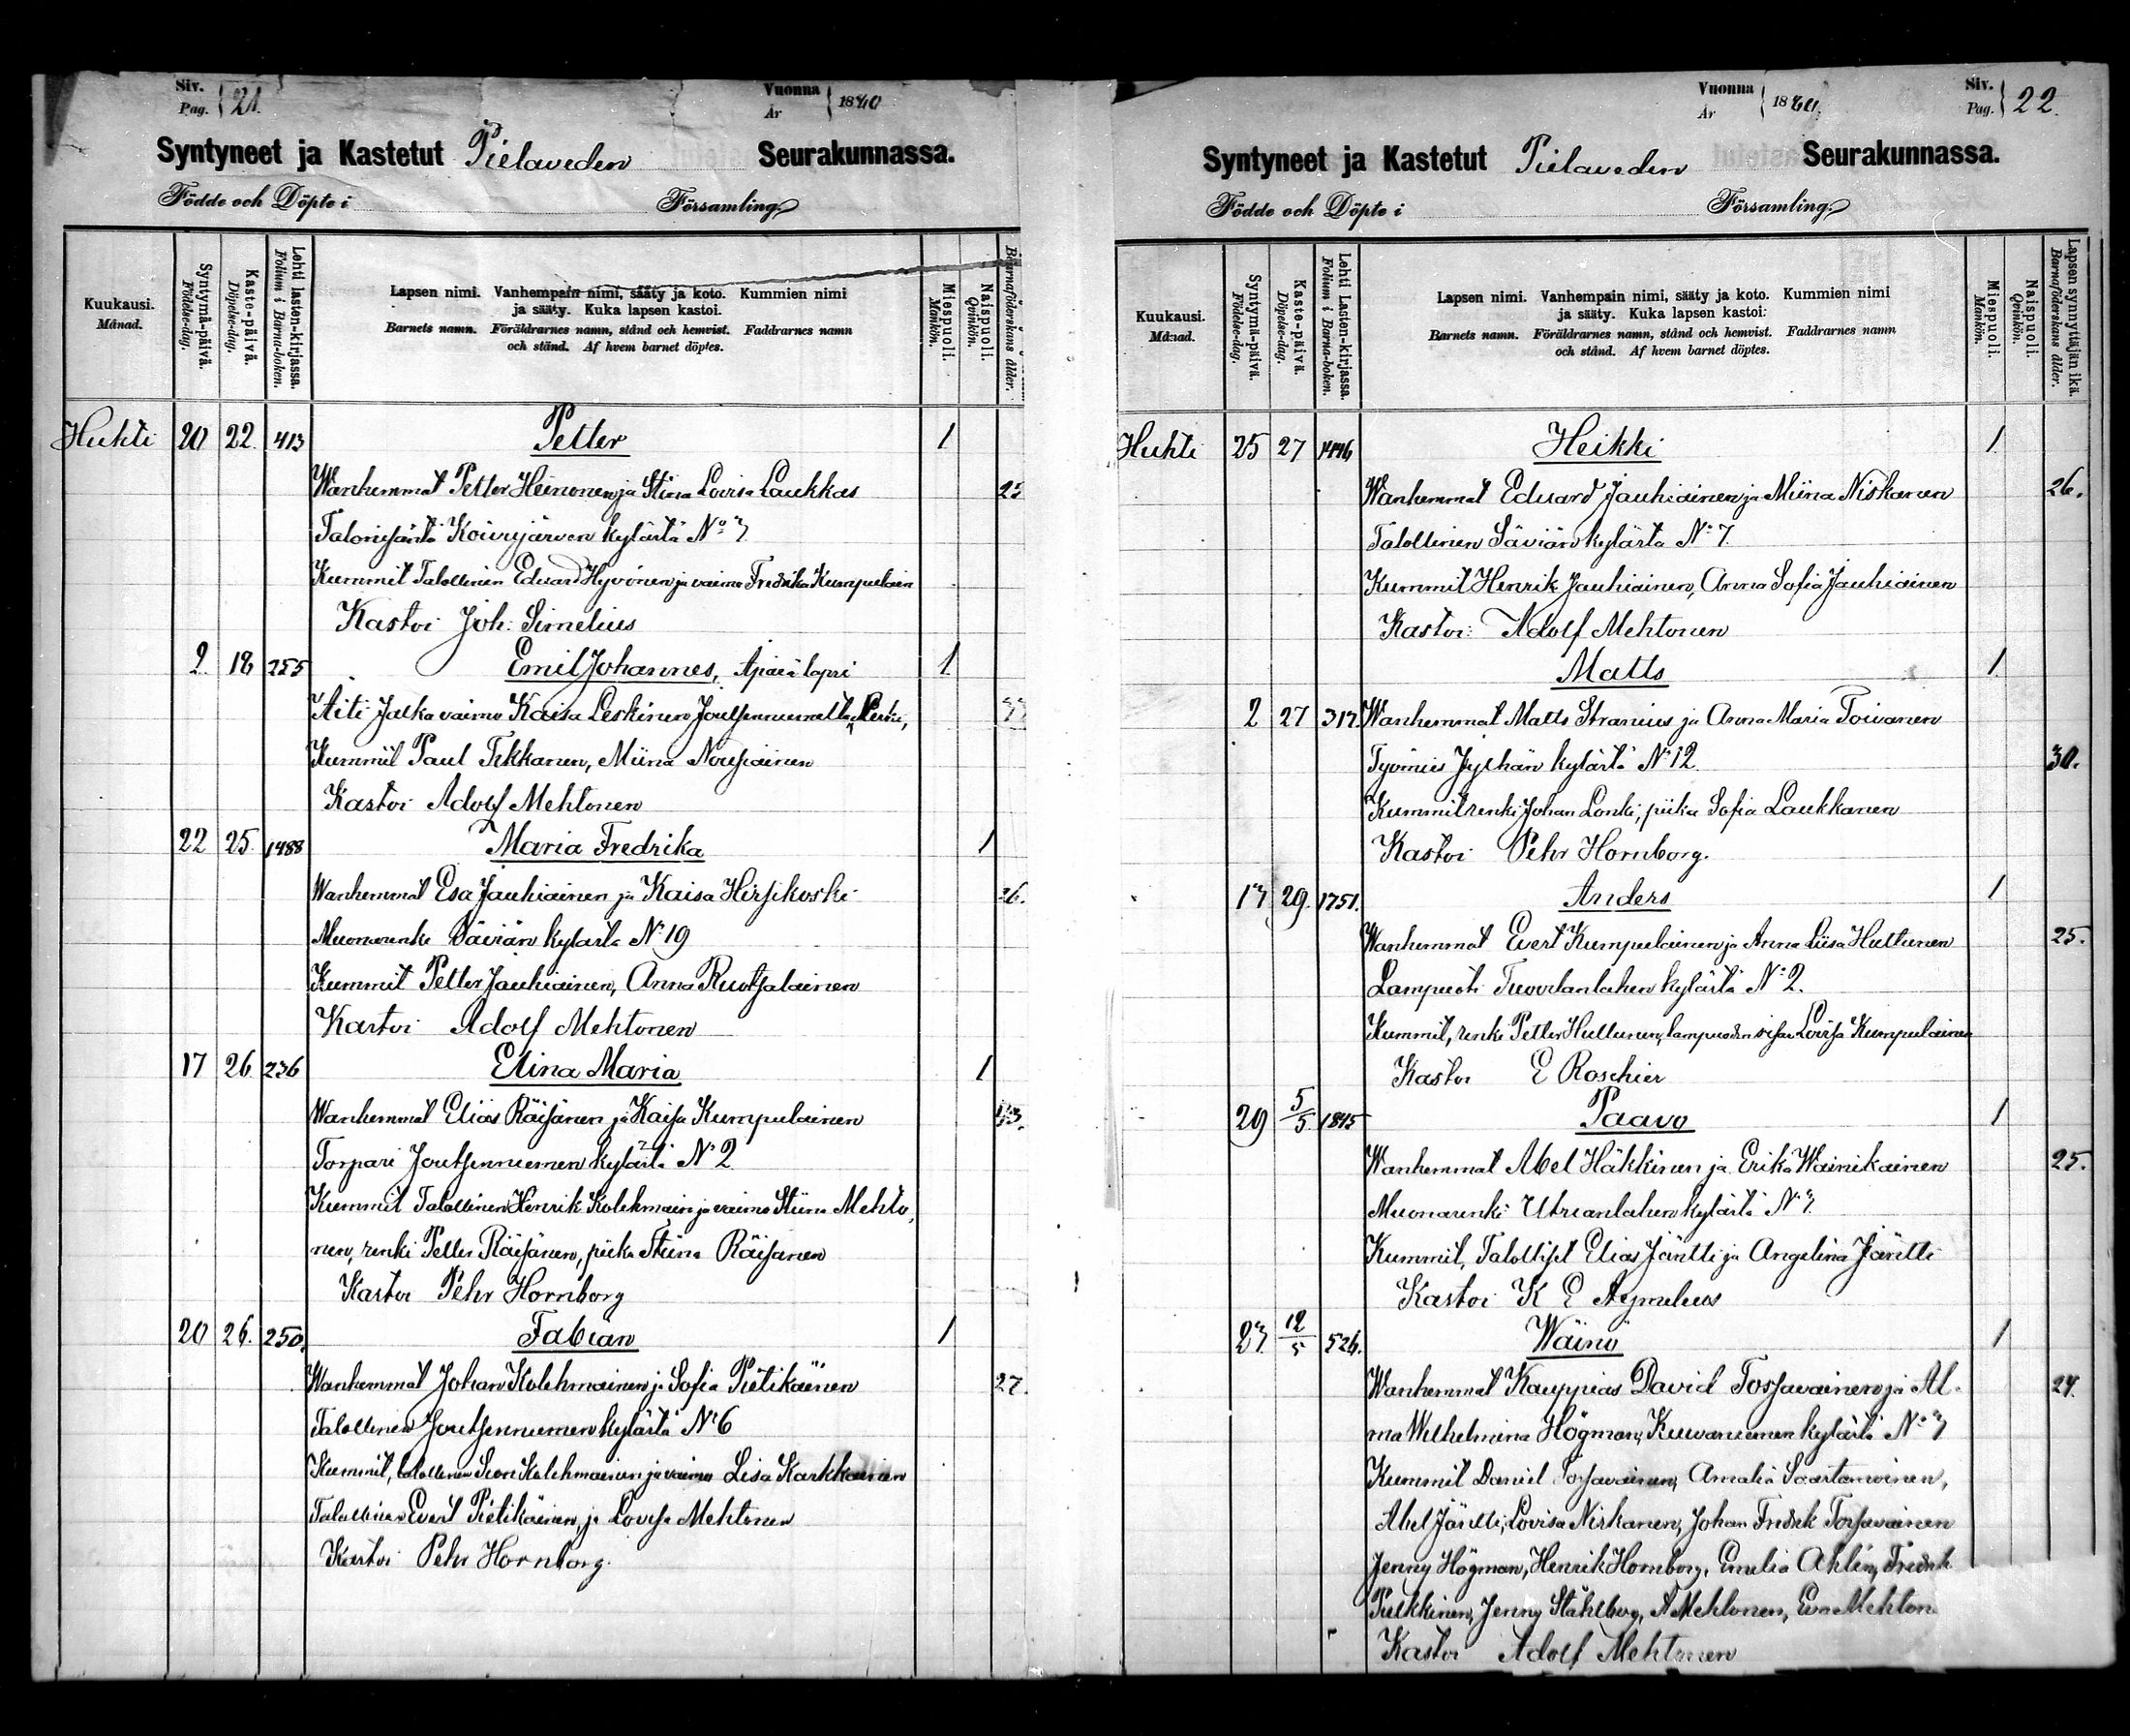 Siv.
Pag. 21.
Vuonna
År 18
Syntyneet ja Kastetut Pielaveden Seurakunnassa.
Födde och Döpte i Församling
Kuukausi.
Månad.
Syntymä-päivä.
Födelse-dag.
Kaste-päivä.
Döpelse-dag.
Lehti lasten-kirjassa.
Folium i Barna-boken.
Lapsen nimi. Vanhempain nimi, sääty ja koto. Kummien nimi
ja sääty. Kuka lapsen kastoi.
Barnets namn. Föräldrarnes namn, stånd och hemvist. Faddrarnes namn
och stånd. Af hvem barnet döptes.
Miespuoli.
Mankön.
Naispuoli.
Qvinkön.
Barnaföderskans ålder.
Huhti 20 22. 413 Petter 1
Wanhemmat Petter Heinonen ja Stina Lovisa Laukkas
Talonisäntä Koivujärven kylästä No 7
Kummit Talollinen Eduard Hyvönen ja vaimo Fredrika Kumpulain
Kastoi Joh. Sirnelius
2. 18 255 Emil Johannes, Äpärälapsi 1
Äiti Jalka vaimo Kaisa Leskinen Joutsenniemeltä
Kummit Paul Tikkanen, Miina Nousiainen
Kastoi Adolf Mehtonen
22 25. 1488 Maria Fredrika 1
Wanhemmat Esa Jauhiainen ja Kaisa Hirsikoski 26.
Muonarenki Säviän kylästä No 19
Kummit Petter Jauhiainen, Anna Ruotsalainen
Kastoi Adolf Mehtonen
17 26. 236 Elina Maria 1
Wanhemmat Elias Räisänen ja Kaisa Kumpulainen
Torpari Joutsenniemen kylästä No 2
Kummit Talollinen Henrik Kolehmain ja vaimo Stiina Mehto,
nen, renki Petter Räisänen, piika Stiina Räisänen
Kastoi Pehr Hornborg
20 26. 250. Fabian 1
Wanhemmat Johan Kolehmainen ja Sofia Pietikäinen 27.
Talollinen Joutsenniemen kylästä No 6
Kummit, talollinen Kolehmainen ja vaimo Lisa Karkkainen
Talollinen Evert Pietikäinen, ja Lovisa Mehtonen
Kastoi Pehr Hornborg.
Vuonna
År 18
Siv.
Pag. 22.
Syntyneet ja Kastetut Pielaveden Seurakunnassa.
Födde och Döpte i Församling
Kuukausi.
Månad.
Syntymä-päivä.
Födelse-dag.
Kaste-päivä.
Döpelse-dag.
Lehti Lasten-kirjassa.
Folium i Barna-boken.
Lapsen nimi. Vanhempain nimi, sääty ja koto. Kummien nimi
ja sääty. Kuka lapsen kastoi:
Barnets namn. Föräldrarnes namn, stånd och hemvist. Faddrarnes namn
och stånd. Af hvem barnet döptes.
Miespuoli.
Mankön.
Naispuoli.
Qvinkön.
Lapsen synnyttäjän ikä.
Barnaföderskans ålder.
Huhti 25 27 1446 Heikki 1
Wanhemmat Eduard Jauhiainen ja Miina Niskanen 26.
Talollinen Säviän kylästä No 7.
Kummit Henrik Jauhiainen, Anna Sofia Jauhiainen
Kastoi: Adolf Mehtonen
Matts 1
2 27 317. Wanhemmat Matts Stranius ja Anna Maria Toivanen
Työmies Jylhän kylästä No 12. 30.
Kummit renki Johan Lonki, piika Sofia Laukkanen
Kastoi Pehr Hornborg.
17 29. 1751. Anders 1
Wanhemmat Evert Kumpulainen ja Anna Liisa Huttunen 25.
Lampuoti Tuovilanlahen kylästä No 2.
Kummit, renki Petter Huttunen, lampuodin sisar Lovisa Kumpulainen
Kastoi E Roschier
29 5/5 1845 Paavo 1
Wanhemmat Abel Häkkinen ja Erika Wainikainen 25.
Muonarenki Utrianlahen kylästä No 7
Kummit, Talolliset Elias Jäntti ja Angelina Jäntti
Kastoi K E Aspnelius
27. 12/5 526. Wäinö 1
Wanhemmat Kauppias David Tossavainen ja Al- 24.
ma Wilhelmina Högman, Kuivaniemen kylästä No 7
Kummit Daniel Tossavainen, Amalia Saastamoinen,
Abel Jäntti, Lovisa Niskanen, Johan Fredrik Tossavainen
Jenny Högman, Henrik Hornborg, Emelia Ahlin, Fredrik
Pulkkinen, Jenny Ståhlberg, A Mehtonen, Eva Mehton
Kastoi Adolf Mehtonen